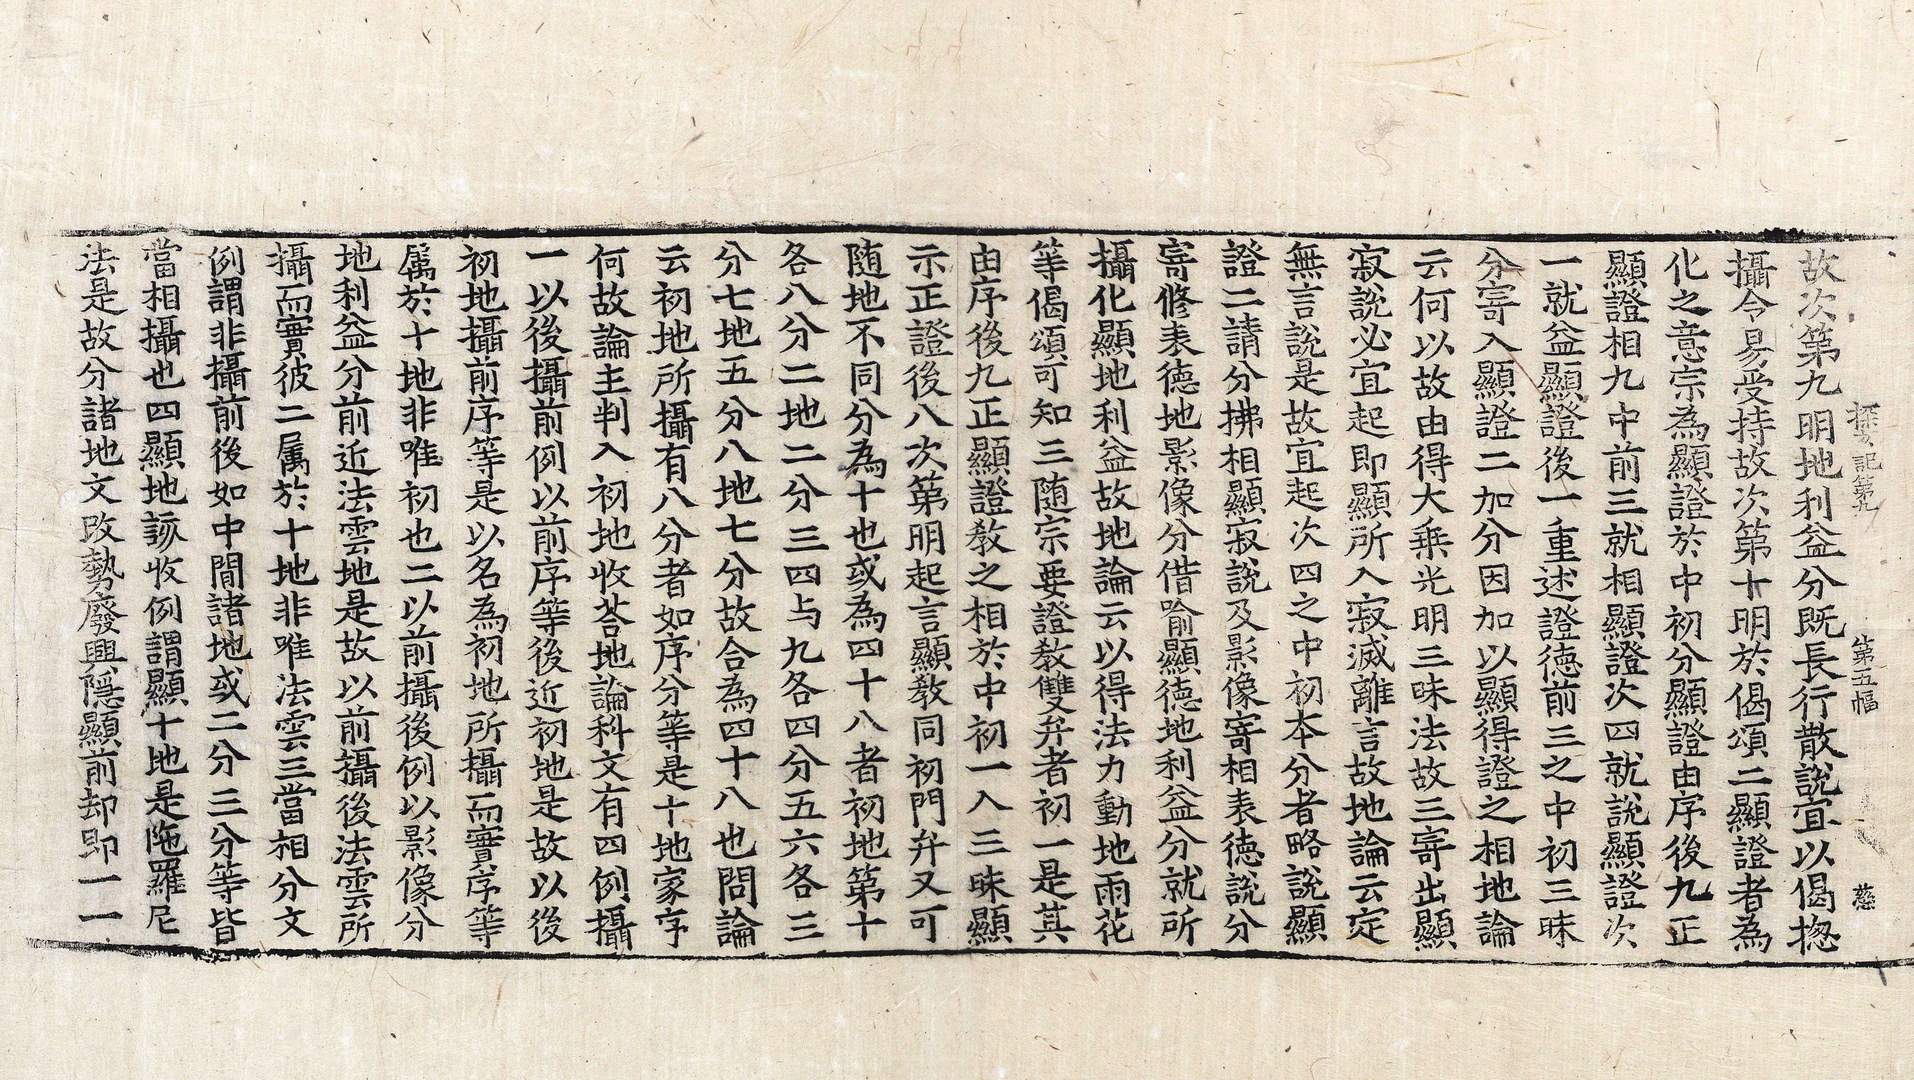 探玄記第九 第五幅 慈
故次第九明地利益分既長行散說宜以偈揔
攝令易受持故次第十明於偈頌二顯證者為
化之意宗為顯證於中初分顯證由序後九正
顯證相九中前三就相顯證次四就說顯證次
一就益顯證後一重述證德前三之中初三昧
分寄入顯證二加分因加以顯得證之相地論
云何以故由得大乗光明三昧法故三寄出顯
寂說必宜起即顯所入寂滅離言故地論云定
無言說是故宜起次四之中初本分者略說顯
證二請分拂相顯寂說及影像寄相表德說分
寄修表德地影像分借喻顯德地利益分就所
攝化顯地利益故地論云以得法力動地雨花
等偈頌可知三随宗要證教雙弁者初一是其
由序後九正顯證教之相於中初一入三昧顯
示正證後八次第明起言顯教同初門弁又可
随地不同分為十也或為四十八者初地第十
各八分二地二分三四与九各四分五六各三
分七地五分八地七分故合為四十八也問論
云初地所攝有八分者如序分等是十地家序
何故論主判入初地收荅地論科文有四例攝
一以後攝前例以前序等後近初地是故以後
初地攝前序等是以名為初地所攝而實序等
属於十地非唯初也二以前攝後例以影像分
地利益分前近法雲地是故以前攝後法雲所
攝而實彼二属於十地非唯法雲三當相分文
例謂非攝前後如中間諸地或二分三分等皆
當相攝也四顯地該收例謂顯十地是陁羅尼
法是故分諸地文改勢廢興隱顯前却即一一